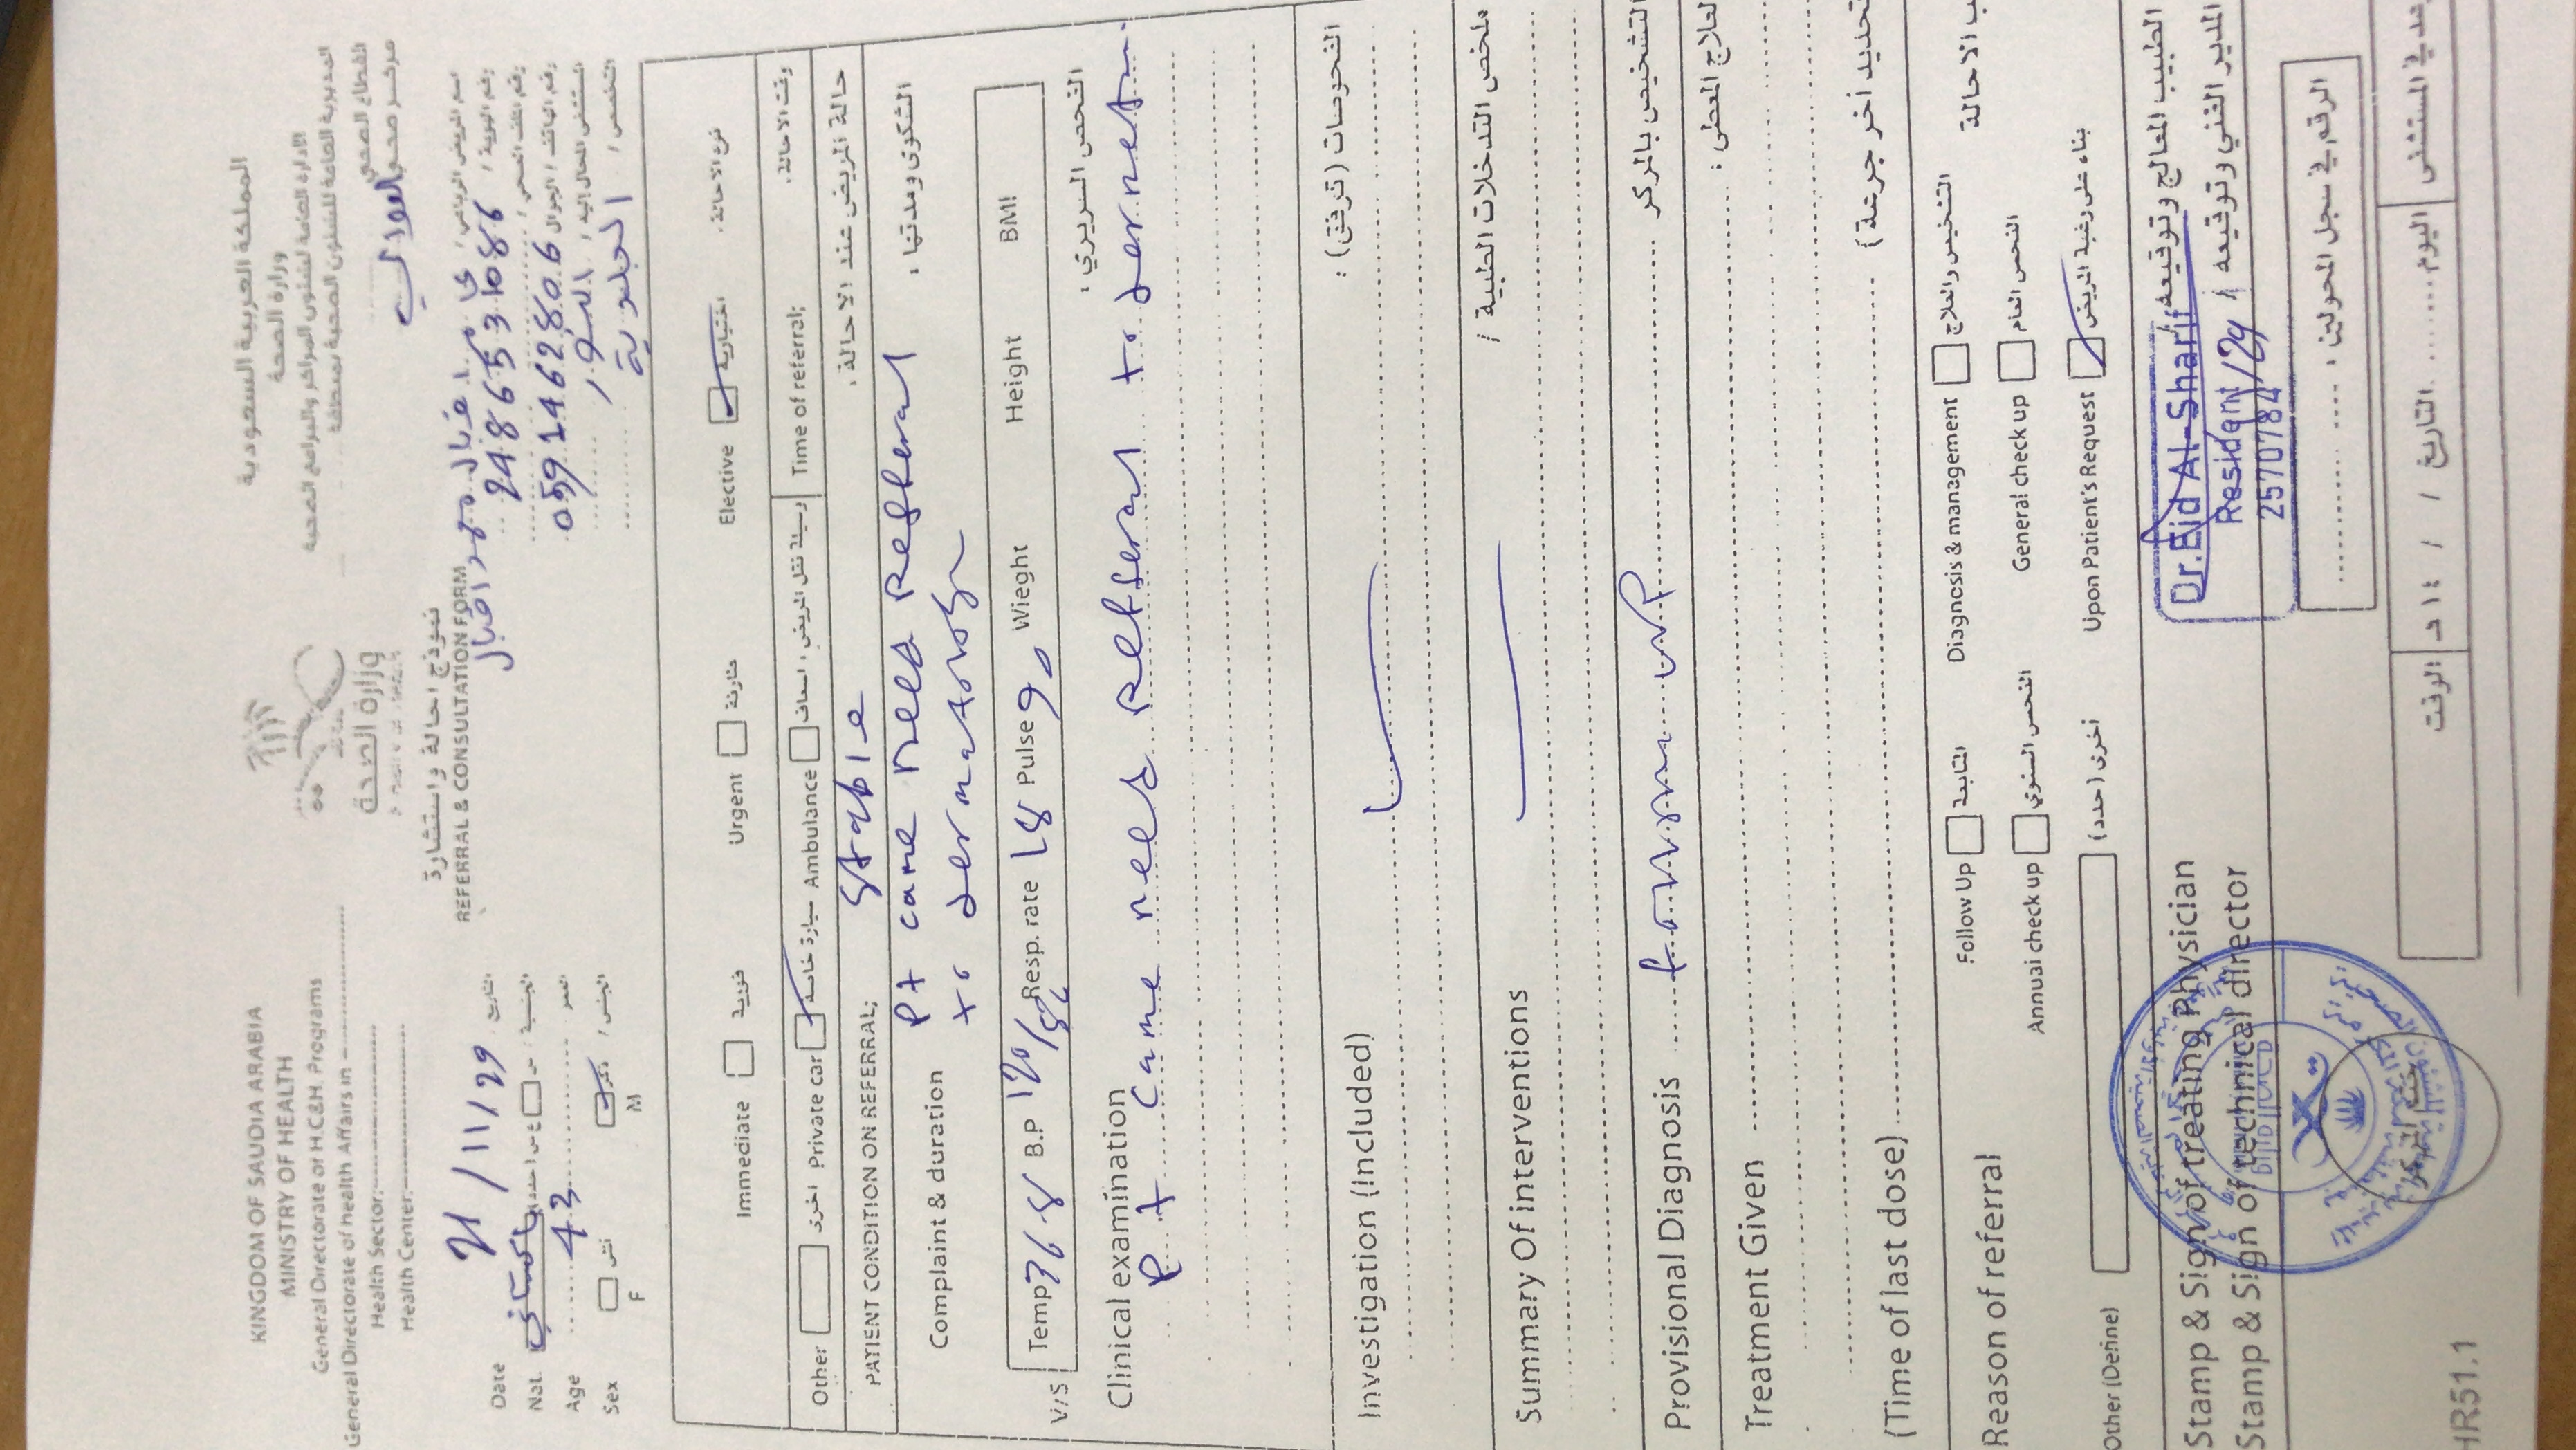 KINGDOM OF SAUDIA ARABIA
MINISTRY OF HEALTH
General Directorate of H.C&H. Programs
General Directorate of health Affairs in
Health Sector:
Health Center:
المملكة العربية السعودية
وزارة الصحة
الادارة العامة لشئون المراكز والبرامج الصحية
المديرية العامة للشئون الصحية بمنطقة
القطاع الصحي
مركز صحي العوالي
وزارة الصحة
نموذج احالة واستشارة
REFERRAL & CONSULTATION FORM
Date 21/11/29 التاريخ
Nat. باكستاني الجنسية : س غ س (حدد)
Age 43 العمر
Sex أنثى ذكر الجنس /
F M
اسم المريض الرباعي / اقبال محمد اقبال
رقم الهوية / 2486531086
رقم الملف الصحي /
رقم الهاتف / الجوال 0591462806
المستشفى المحال إليه / النور
التخصص / الجلدية
Immediate فورية Urgent Elective اختيارية نوع الاحالة :
Other اخرى Private car سيارة خاصة Ambulance وسيلة نقل المريض : اسعاف Time of referral; وقت الاحالة :
PATIENT CONDITION ON REFERRAL; Stable حالة المريض عند الاحالة :
Complaint & duration Pt came need Refferal الشكوى ومدتها :
to dermatology
V/S Temp 36.8 B.P 120/ Resp. rate 18 Pulse 90 Wieght Height BMI
Clinical examination الفحص السريري :
Pt came need Refferal to
Investigation (Included) الفحوصات (ترفق) :
Summary Of interventions ملخص التدخلات الطبية /
Provisional Diagnosis follow up التشخيص بالمركز
Treatment Given لعلاج المعطى :
(Time of last dose) تحديد أخر جرعة )
Reason of referral Follow Up المتابعة Diagnosis & management التشخيص والعلاج ب الاحالة
Annual check up الفحص السنوي General check up الفحص العام
Other (Define) أخرى (حدد) Upon Patient's Request بناء على رغبة المريض
Stamp & Sign of treating Physician الطبيب المعالج وتوقيعه /
Stamp & Sign of technical director المدير الفني وتوقيعه /
Dr.Eid Al-Sharif
Resident
2570784
الرقم في سجل المحولين :
ختم المركز
المستشفى اليوم التاريخ / / ١٤ هـ الوقت
HR51.1